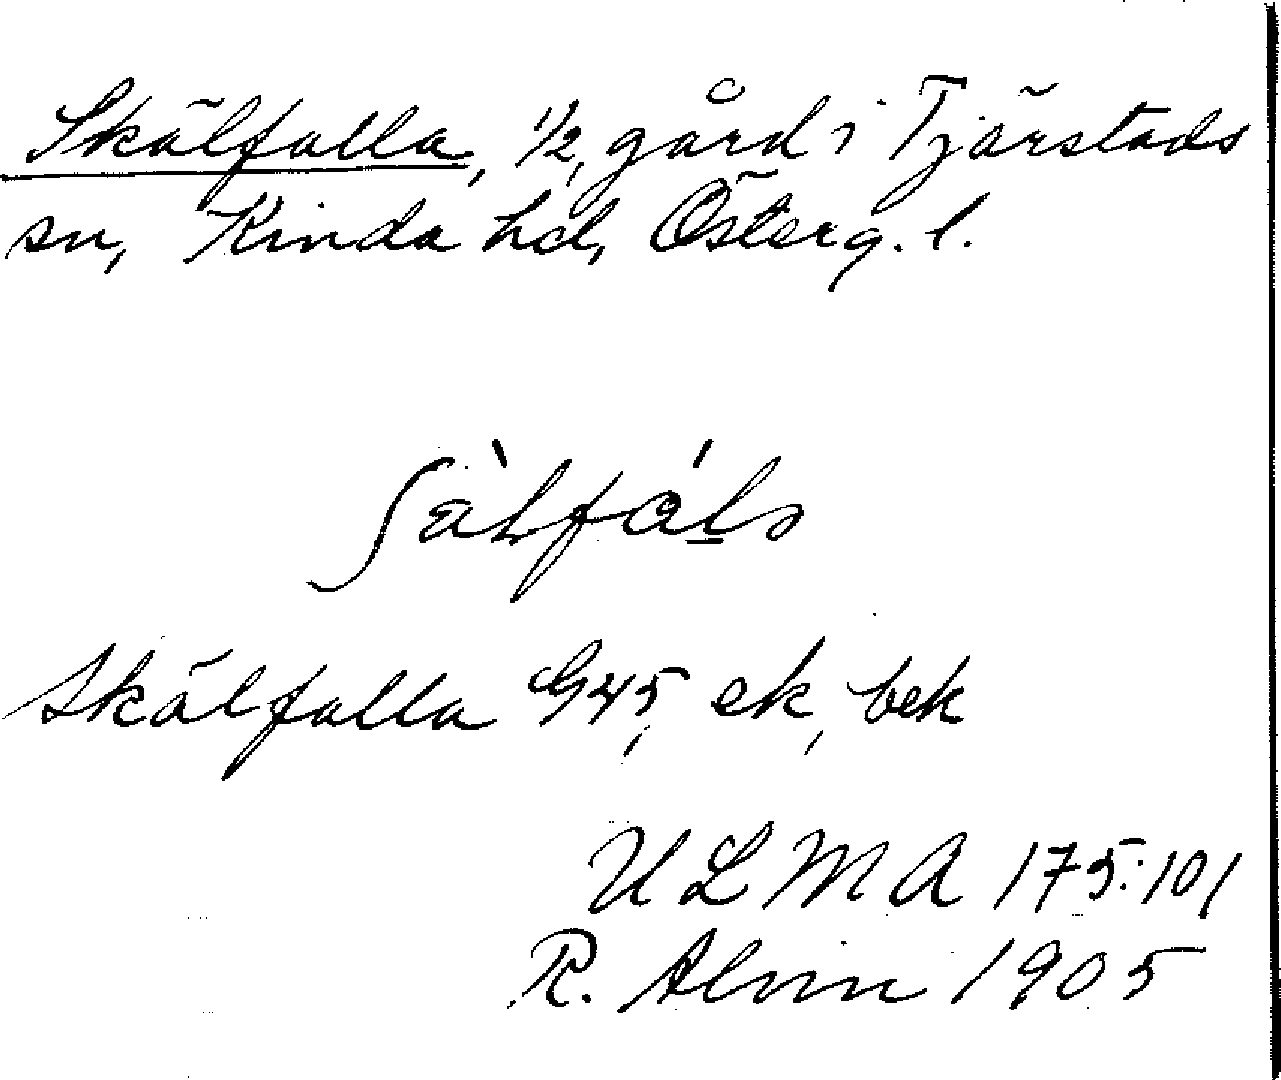 Skälfalla, 1/2 gård i Tjärstads
sn, Kinda hd, Österg. l.
Skälfalla G45, ek, bek
ULMA 175:101
R. Alvin 1905